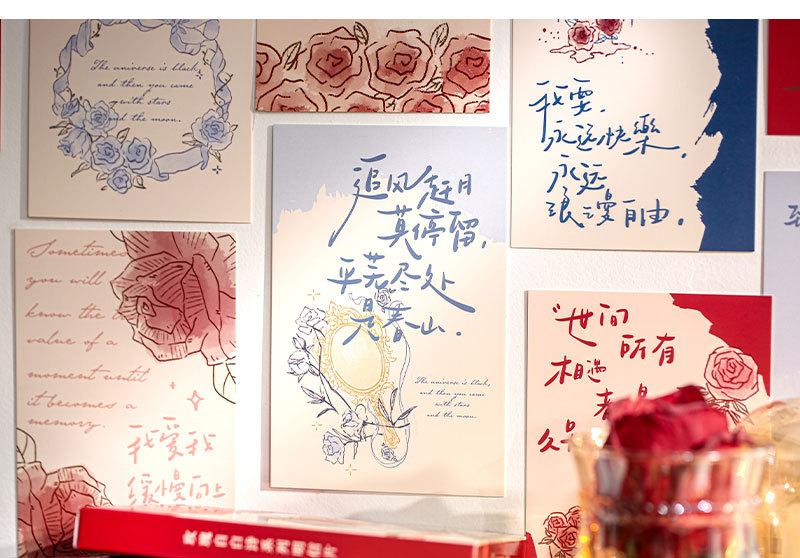 The universe is black,
and then you came
with stars
and the moon.
我要，
永远快乐，
永远
浪漫自由。
追风赶月
莫停留，
平芜尽处
是春山。
The universe is black,
and then you came
with stars
and the moon.
Sometimes
you will
know the
value of a
moment until
it becomes a
memory.
我爱我
缓慢向上
“世间
所有
相遇
久
玫瑰自白诗系列明信片